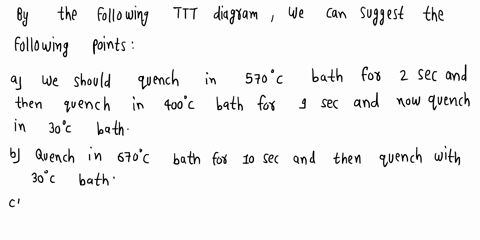 By the following TTT diagram, we can suggest the
following points:
a) we should quench in 570°c bath for 2 sec and
then quench in 400°c bath for 9 sec and now quench
in 30°c bath.
b) Quench in 670°c bath for 10 sec and then quench with
30°c bath.
c'